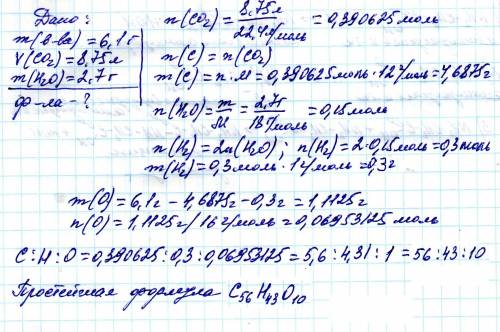 Дано:
m(в-ва)=6,1г
V(CO₂)=8,75л
m(H₂O)=2,7г
ф-ла-?
n(CO₂)=8,75л/22,4л/моль=0,390625моль
n(C)=n(CO₂)
m(C)=n·M=0,390625моль·12г/моль=4,6875г
n(H₂O)=m/M=2,7г/18г/моль=0,15моль
n(H₂)=2n(H₂O); n(H₂)=2·0,15моль=0,3моль
m(H₂)=0,3моль·1г/моль=0,3г
m(O)=6,1г-4,6875г-0,3г=1,1125г
n(O)=1,1125г/16г/моль=0,06953125моль
C:H:O=0,390625:0,3:0,06953125=5,6:4,31:1=56:43:10
Простейшая формула C₅₆H₄₃O₁₀